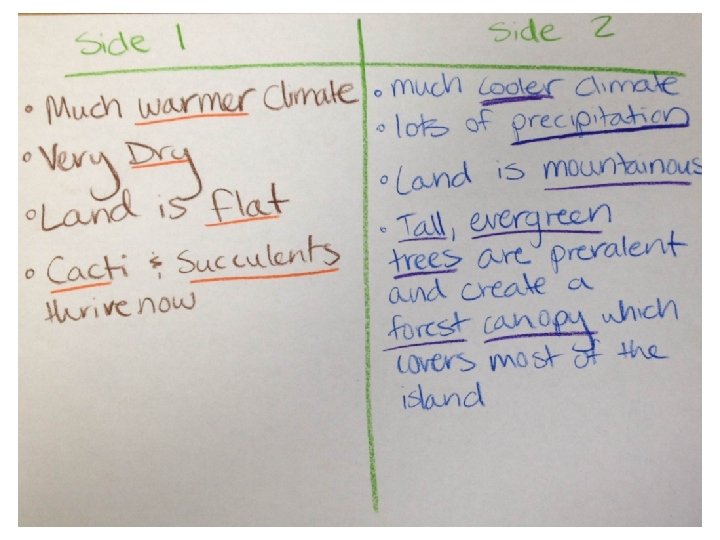 Side 1
• Much warmer Climate
• Very Dry
• Land is flat
• Cacti & Succulents
thrive now
Side 2
• much cooler climate
• lots of precipitation
• Land is mountainous
• Tall, evergreen
trees are prevalent
and create a
forest canopy which
covers most of the
island